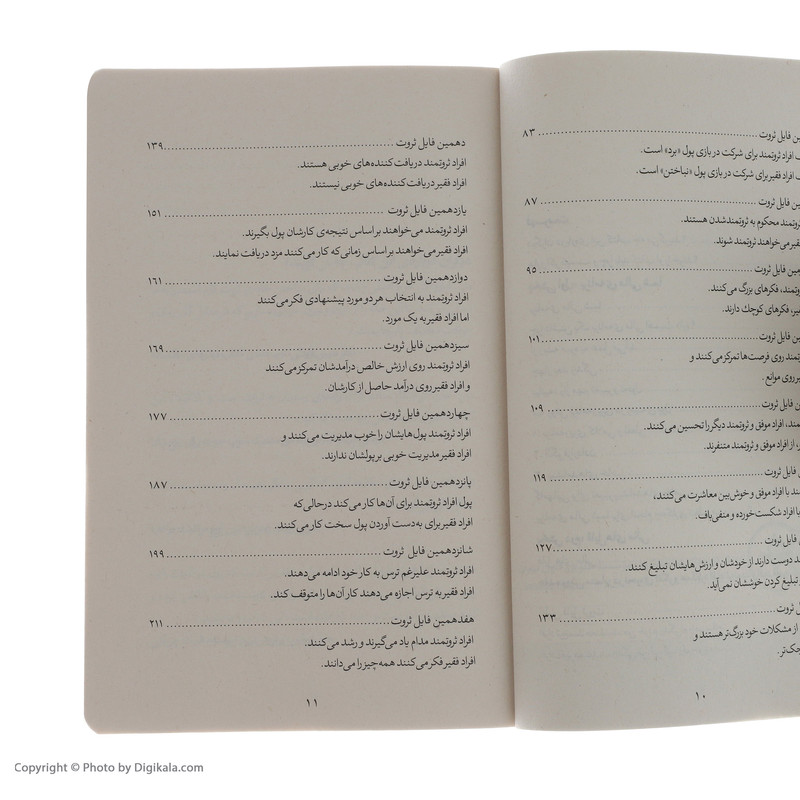 ین فایل ثروت ........ ۸۳
افراد ثروتمند برای شرکت در بازی پول «برد» است.
افراد فقیر برای شرکت در بازی پول «نباختن» است.
ین فایل ثروت ........ ۸۷
ثروتمند محکوم به ثروتمند شدن هستند.
فقیر می‌خواهند ثروتمند شوند.
ین فایل ثروت ........ ۹۵
فکرهای بزرگ می‌کنند.
فکرهای کوچک دارند.
ین فایل ثروت ........ ۱۰۱
روی فرصت‌ها تمرکز می‌کنند و
روی موانع.
ین فایل ثروت ........ ۱۰۹
افراد موفق و ثروتمند دیگر را تحسین می‌کنند.
از افراد موفق و ثروتمند متنفرند.
فایل ثروت ........ ۱۱۹
با افراد موفق و خوش‌بین معاشرت می‌کنند،
با افراد شکست‌خورده و منفی‌باف.
فایل ثروت ........ ۱۲۷
دوست دارند از خودشان و ارزش‌هایشان تبلیغ کنند.
تبلیغ کردن خوششان نمی‌آید.
ثروت ........ ۱۳۳
از مشکلات خود بزرگ‌تر هستند و
۱۰
دهمین فایل ثروت ........ ۱۳۹
افراد ثروتمند دریافت‌کننده‌های خوبی هستند.
افراد فقیر دریافت‌کننده‌های خوبی نیستند.
یازدهمین فایل ثروت ........ ۱۵۱
افراد ثروتمند می‌خواهند بر اساس نتیجه‌ی کارشان پول بگیرند.
افراد فقیر می‌خواهند بر اساس زمانی که کار می‌کنند مزد دریافت نمایند.
دوازدهمین فایل ثروت ........ ۱۶۱
افراد ثروتمند به انتخاب هر دو مورد پیشنهادی فکر می‌کنند
اما افراد فقیر به یک مورد.
سیزدهمین فایل ثروت ........ ۱۶۹
افراد ثروتمند روی ارزش خالص درآمدشان تمرکز می‌کنند
و افراد فقیر روی درآمد حاصل از کارشان.
چهاردهمین فایل ثروت ........ ۱۷۷
افراد ثروتمند پول‌هایشان را خوب مدیریت می‌کنند و
افراد فقیر مدیریت خوبی بر پولشان ندارند.
پانزدهمین فایل ثروت ........ ۱۸۷
پول افراد ثروتمند برای آن‌ها کار می‌کند درحالی‌که
افراد فقیر برای به‌دست آوردن پول سخت کار می‌کنند.
شانزدهمین فایل ثروت ........ ۱۹۹
افراد ثروتمند علیرغم ترس به کار خود ادامه می‌دهند.
افراد فقیر به ترس اجازه می‌دهند کار آن‌ها را متوقف کند.
هفدهمین فایل ثروت ........ ۲۱۱
افراد ثروتمند مدام یاد می‌گیرند و رشد می‌کنند.
افراد فقیر فکر می‌کنند همه‌چیز را می‌دانند.
۱۱
Copyright © Photo by Digikala.com